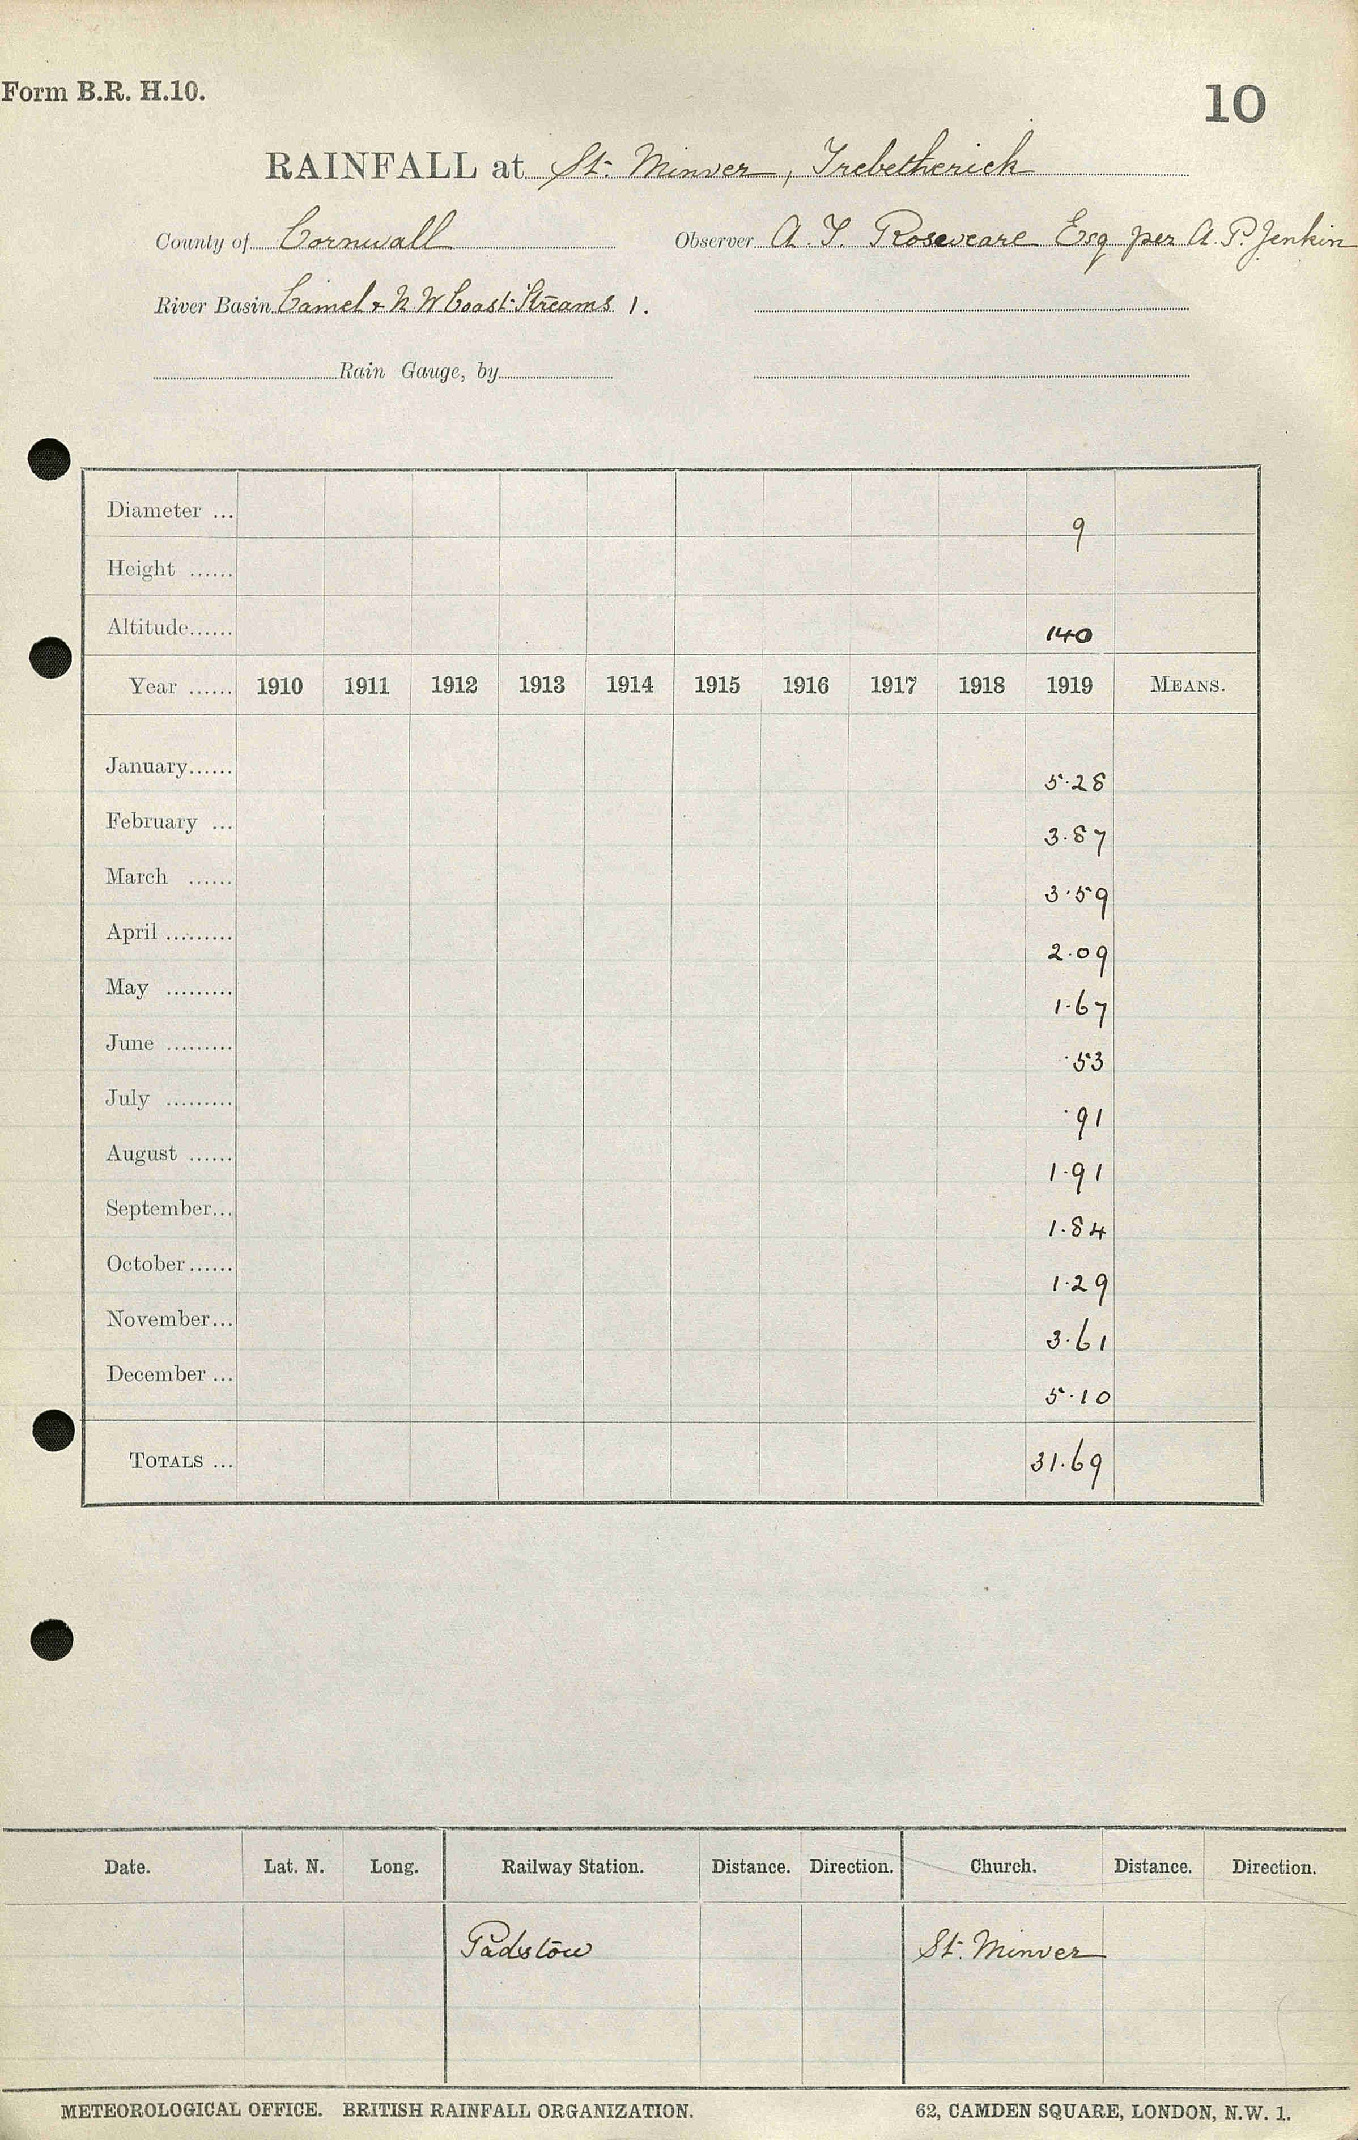 Form B.R. H.10.
10
RAINFALL at St. Minver, Trebetherick
County of Cornwall Observer A. T. Roseveare Esq per A. P. Jenkin
River Basin Camel & N W Coast Streams 1.
Rain Gauge, by
Diameter ... 9
Height ......
Altitude...... 140
Year ...... 1910 1911 1912 1913 1914 1915 1916 1917 1918 1919 MEANS.
January...... 5.28
February ... 3.87
March ...... 3.59
April ......... 2.09
May ......... 1.67
June ......... .53
July ......... .91
August ...... 1.91
September... 1.84
October...... 1.29
November... 3.61
December ... 5.10
TOTALS ... 31.69
Date. Lat. N. Long. Railway Station. Distance. Direction. Church. Distance. Direction.
Padstow St. Minver
METEOROLOGICAL OFFICE. BRITISH RAINFALL ORGANIZATION. 62, CAMDEN SQUARE, LONDON, N.W. 1.